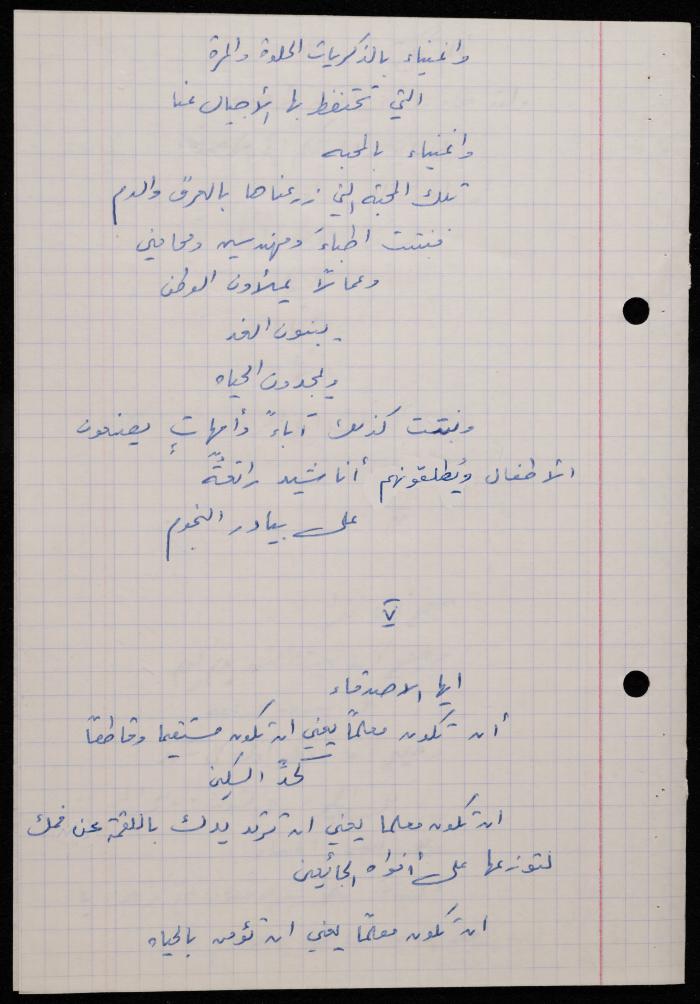 واغنياء بالذكريات الحلوة والمرة
التي تحتفظ بها الأجيال عنا
واغنياء بالمحبه
تلك المحبة التي زرعناها بالعرق والدم
فنبتت اطباءَ ومهندسين ومحامين
وعمالاً يملأون الوطن
يبنون الغد
ويمجدون الحياه
ونبتت كذلك آباءً وأمهاتٍ يصنعون
الأطفال ويُطلقونهم أناشيد رائعةً
على بيادر النجوم
٧
ايها الاصدقاء
أن تكون معلماً يعني ان تكون مستقيما وقاطعاً
كحدِّ السكين
ان تكون معلما يعني ان ترتد يدك باللقمة عن فمك
لتوزعها على أفواه الجائعين
ان تكون معلمًا يعني ان تؤمن بالحياه